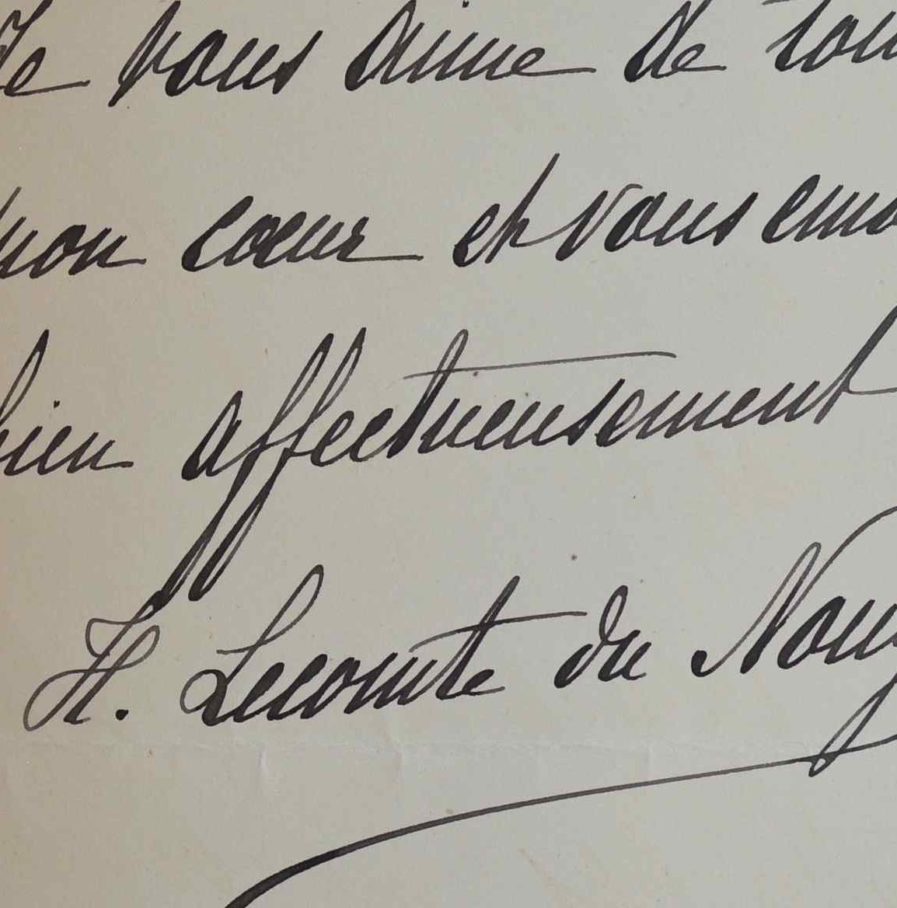 Je vous aime de tou
mon cœur et vous emb
bien affectueusement
H. Lecomte du Nouÿ